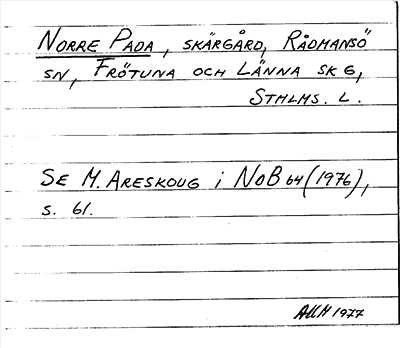 NORRE PADA, SKÄRGÅRD, RÅDMANSÖ
SN, FRÖTUNA OCH LÄNNA SKG,
STHLMS. L.
SE M. ARESKOUG i NoB 64 (1976),
s. 61.
AMM 1977